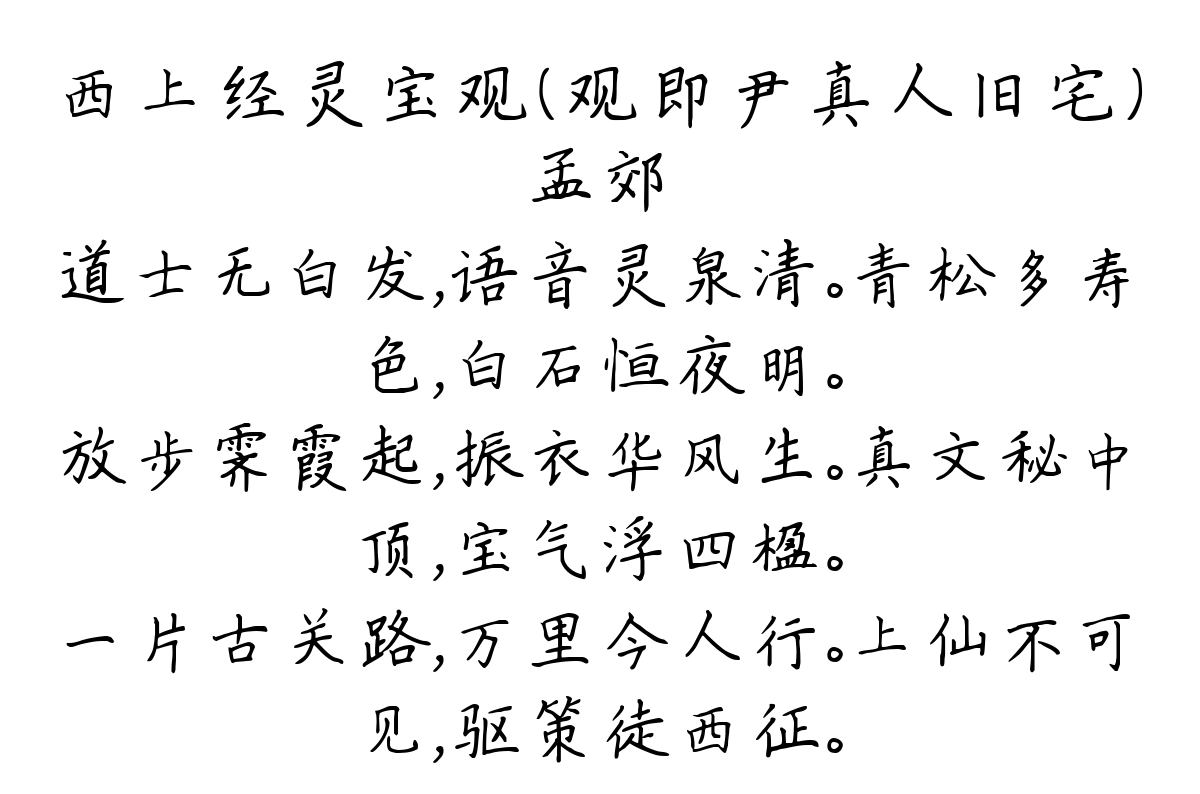 西上经灵宝观(观即尹真人旧宅)
孟郊
道士无白发,语音灵泉清。青松多寿
色,白石恒夜明。
放步霁霞起,振衣华风生。真文秘中
顶,宝气浮四楹。
一片古关路,万里今人行。上仙不可
见,驱策徒西征。